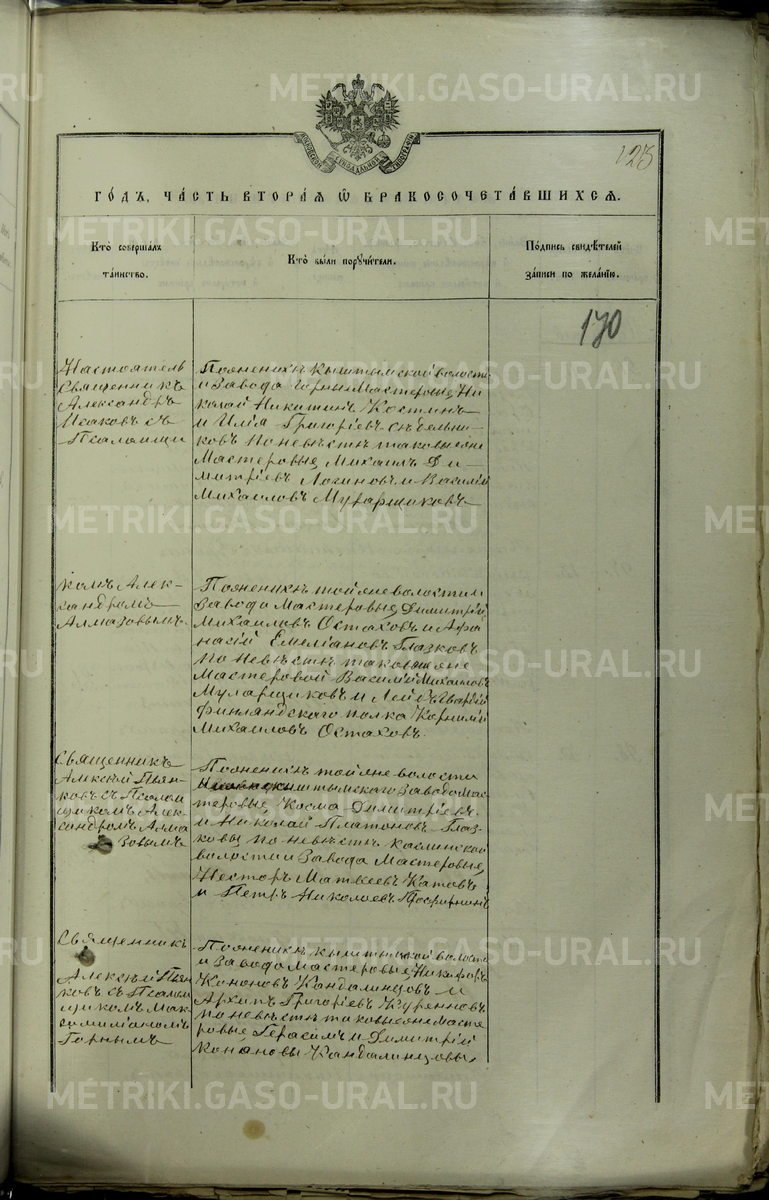 METRIKI.GASO-URAL.RU
128
МОСКОВСКОЙ СѴНОДАЛЬНОЙ ТИПОГРАФІИ
ГО́ДЪ, ЧА́СТЬ ВТОРА́Я Ѡ҆ БРАКОСОЧЕТА́ВШИХСЯ.
Кто̀ соверша́лъ
та́инство.
Кто̀ бы́ли порꙋчи́тели.
По́дпись свидѣ́телей
за́писи по жела́нію.
170
Настоятель
Священникъ
Александръ
Исаковъ съ
Псаломщи
По женихѣ Кыштымской волости
и Завода Горные Мастеровые Ни
колай Никитинъ Костинъ
и Илія Григоріевъ Сѣдельни
ковъ По невѣстѣ таковые же
Мастеровые Михаилъ Ди
митріевъ Логиновъ и Василій
Михаиловъ Муларщиковъ
комъ Алек
сандромъ
Алмазовымъ.
По женихѣ той же волости и
Завода Мастеровые Димитрій
Михаиловъ Остаховъ и Афа
насій Емеліановъ Глазковъ
по невѣстѣ таковые же
Мастеровой Василій Михаиловъ
Муларщиковъ и Лейбъ Гвардій
Финляндскаго полка Корнилій
Михаиловъ Остаховъ.
Священникъ
Алексѣй Пьян
ковъ съ Псалом
щикомъ Алек
сандромъ Алма
зовымъ
По женихѣ той же волости
Кыштымскаго Завода Мас
теровые Косма Димитріевъ
и Николай Платоновъ Глаз
ковы по невѣстѣ Каслинской
волости и Завода Мастеровые
Несторъ Матвеевъ Катовъ
и Петръ Николаевъ
Священникъ
Алексѣй Пьян
ковъ съ Псалом
щикомъ Мак
симиліаномъ
Горнымъ
По женихѣ Кыштымской волости
и Завода Мастеровые Никифоръ
Кононовъ Кандалинцовъ и
Архипъ Григоріевъ Куренновъ
по невѣстѣ таковые же Масте
ровые Герасимъ и Димитрій
Конановы Кандалинцовы